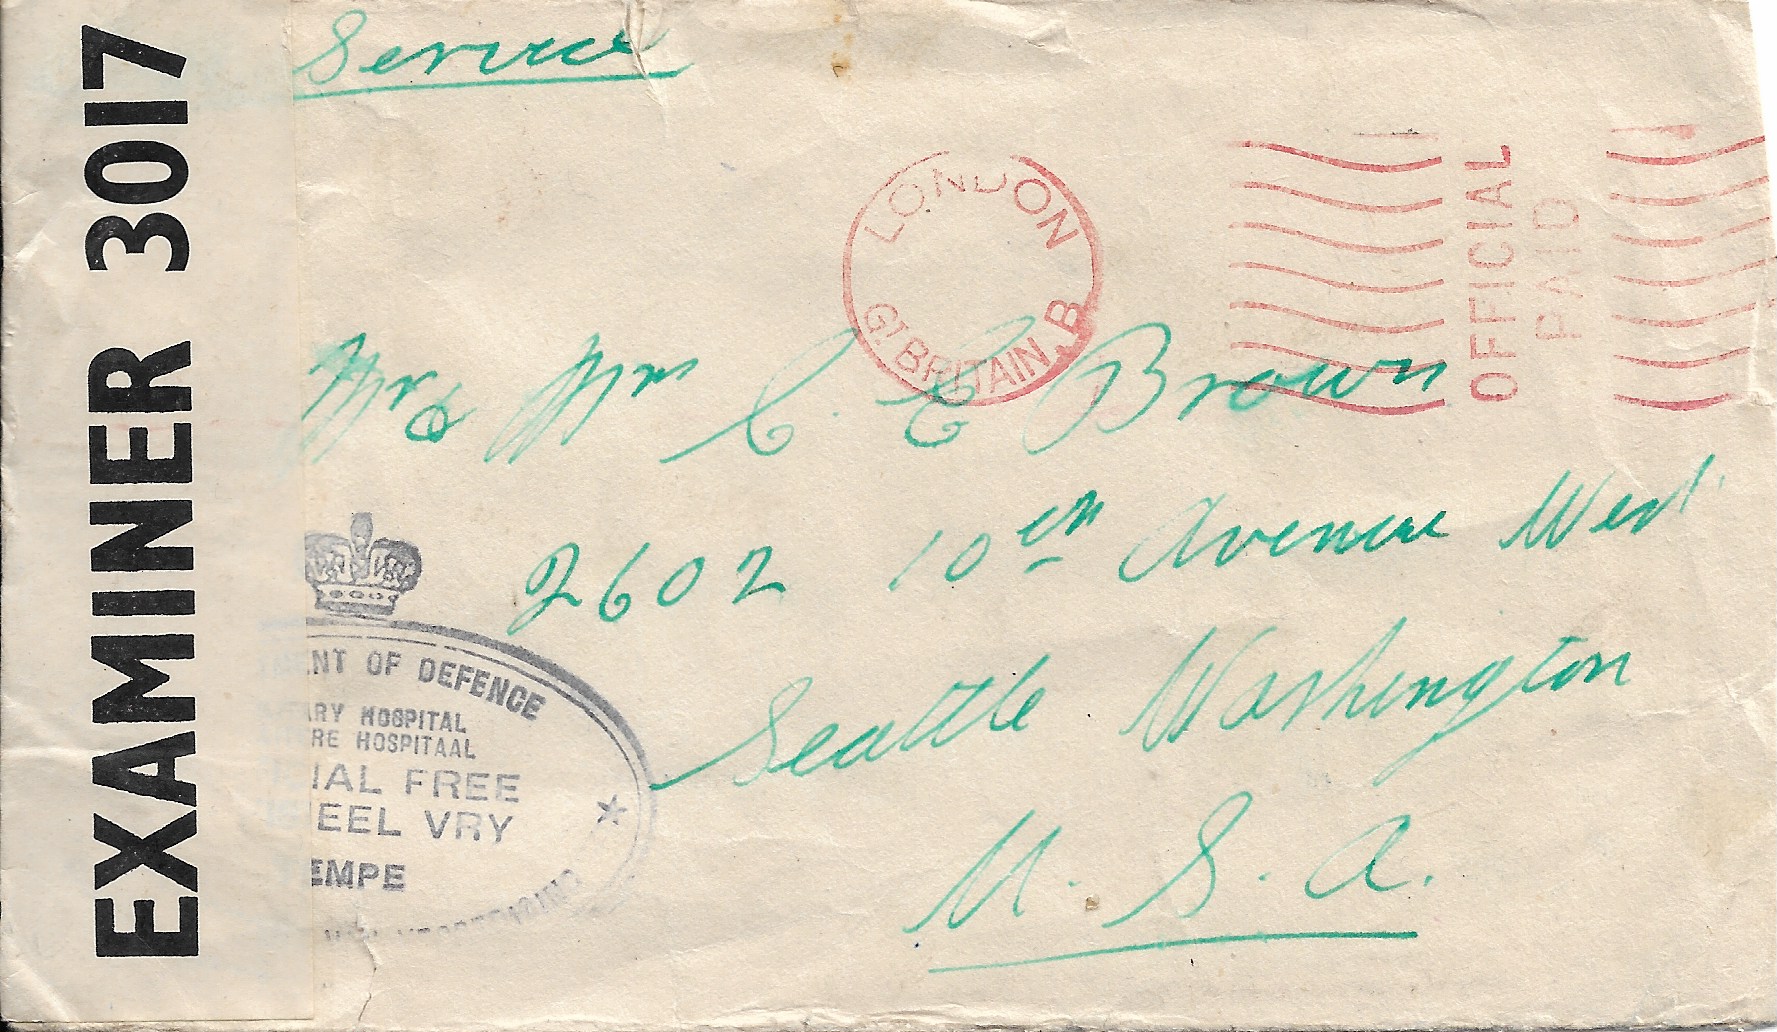 EXAMINER 3017
Service
LONDON
GT. BRITAIN. B
OFFICIAL
PAID
Mr & Mrs C. C Brown
2602 10th Avenue West
Seattle Washington
U. S. A.
ENT OF DEFENCE
ARY HOSPITAL
RE HOSPITAAL
IAL FREE
EEL VRY
EMPE